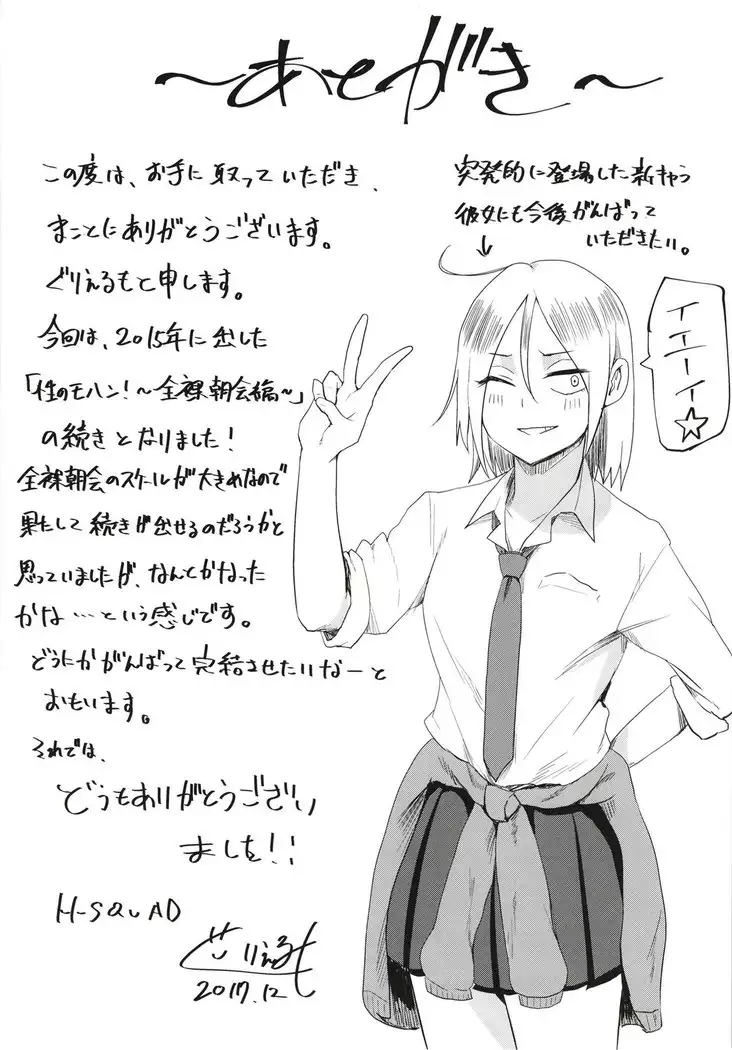 ~あとがき~
この度は、お手に取っていただき、
まことにありがとうございます。
ぐりえるもと申します。
今回は、2015年に出した
「性のモハン!~全裸朝会編~」
の続きとなりました!
全裸朝会のスケールが大きめなので
果たして続きが出せるのだろうかと
思っていましたが、なんとかなった
かな…という感じです。
どうにかがんばって完結させたいなーと
おもいます。
それでは、
どうもありがとうござい
ました!!
H-SQUAD
ぐりえるも
2017.12
突発的に登場した新キャラ
彼女にも今後がんばって
いただきたい。
イエーイ☆